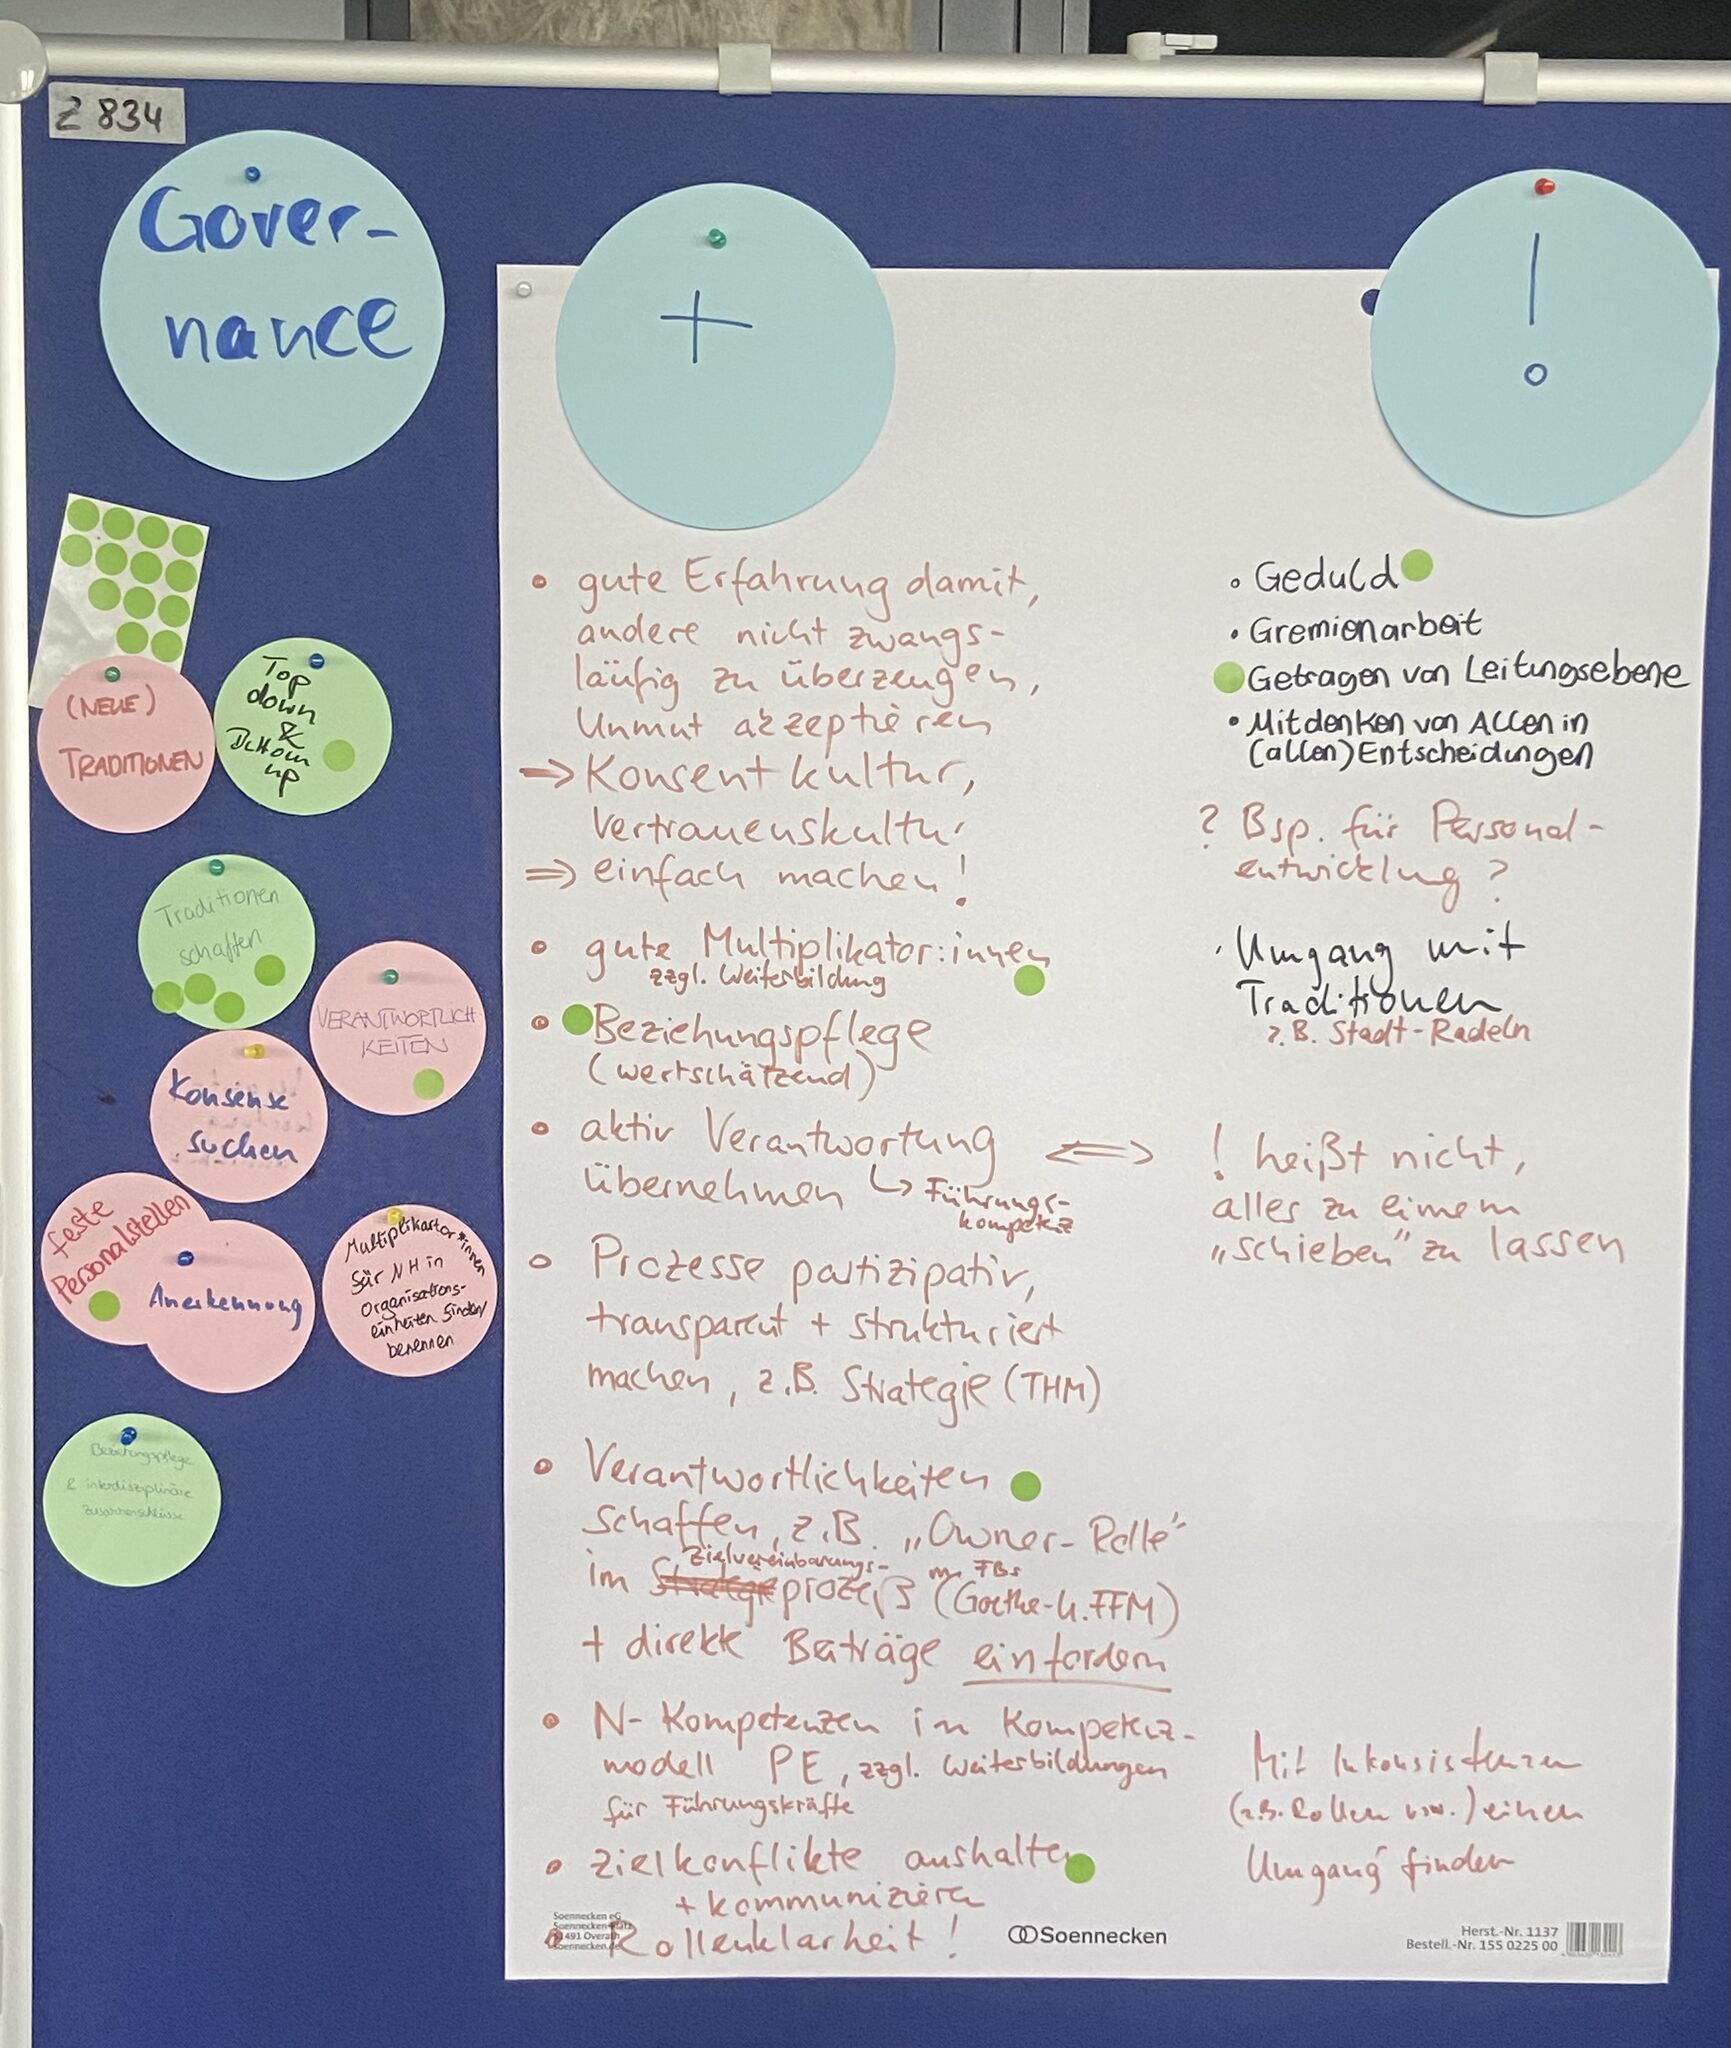 Z 834
Gover-
nance
+
!
(NEUE)
TRADITIONEN
Top
down
&
Bottom
up
Traditionen
schaffen
VERANTWORTLICH
KEITEN
Konsense
suchen
feste
Personalstellen
Anerkennung
Multiplikator*innen
für NH in
Organisations-
einheiten finden/
benennen
Beziehungspflege
& interdisziplinäre
Zusammenschlüsse
• gute Erfahrung damit,
andere nicht zwangs-
läufig zu überzeugen,
Unmut akzeptieren
⇒ Konsentkultur,
Vertrauenskultur
⇒ einfach machen!
• gute Multiplikator:innen
zzgl. Weiterbildung
• Beziehungspflege
(wertschätzend)
• aktiv Verantwortung
übernehmen ↳ Führungs-
kompetenz
• Prozesse partizipativ,
transparent + strukturiert
machen, z.B. Strategie (THM)
• Verantwortlichkeiten
schaffen, z.B. „Owner-Rolle"
Zielvereinbarungs- m. FBs
im Strategieprozeß (Goethe-U. FFM)
+ direkte Beiträge einfordern
• N-Kompetenzen in Kompetenz-
modell PE, zzgl. Weiterbildungen
für Führungskräfte
• Zielkonflikte aushalten
+ kommunizieren
• Rollenklarheit!
• Geduld
• Gremienarbeit
Getragen von Leitungsebene
• Mitdenken von Allen in
(allen) Entscheidungen
? Bsp. für Personal-
entwicklung?
• Umgang mit
Traditionen
z.B. Stadt-Radeln
⇔ ! heißt nicht,
alles zu einem
„schieben" zu lassen
Mit Inkonsistenzen
(z.B. Rollen usw.) einen
Umgang finden
Soennecken eG
Soennecken-Platz
51491 Overath
soennecken.de
Soennecken
Herst.-Nr. 1137
Bestell.-Nr. 155 0225 00